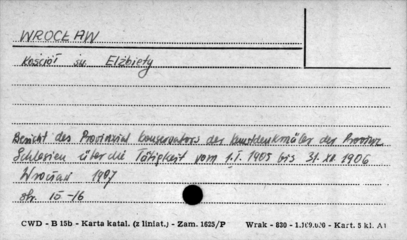 WROCŁAW
Kościół św. Elżbiety
Bericht des Provinzial Konservators der Kunstdenkmäler der Provinz
Schlesien über die Tätigkeit vom 1.I. 1905 bis 31.XII 1906
Wrocław 1907
str. 15-16
CWD - B 15b - Karta katal. (z liniat.) - Zam. 1625/P Wrak - 820 - Kart. 5 kl. A1